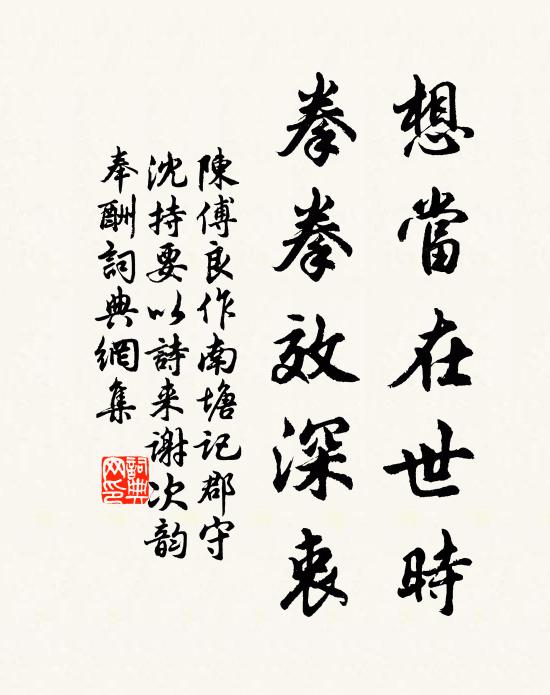 想當在世時
拳拳效深衷
陳傅良作南塘記郡守
沈持要以詩来謝次韵
奉酬詞典網集
詞典網印